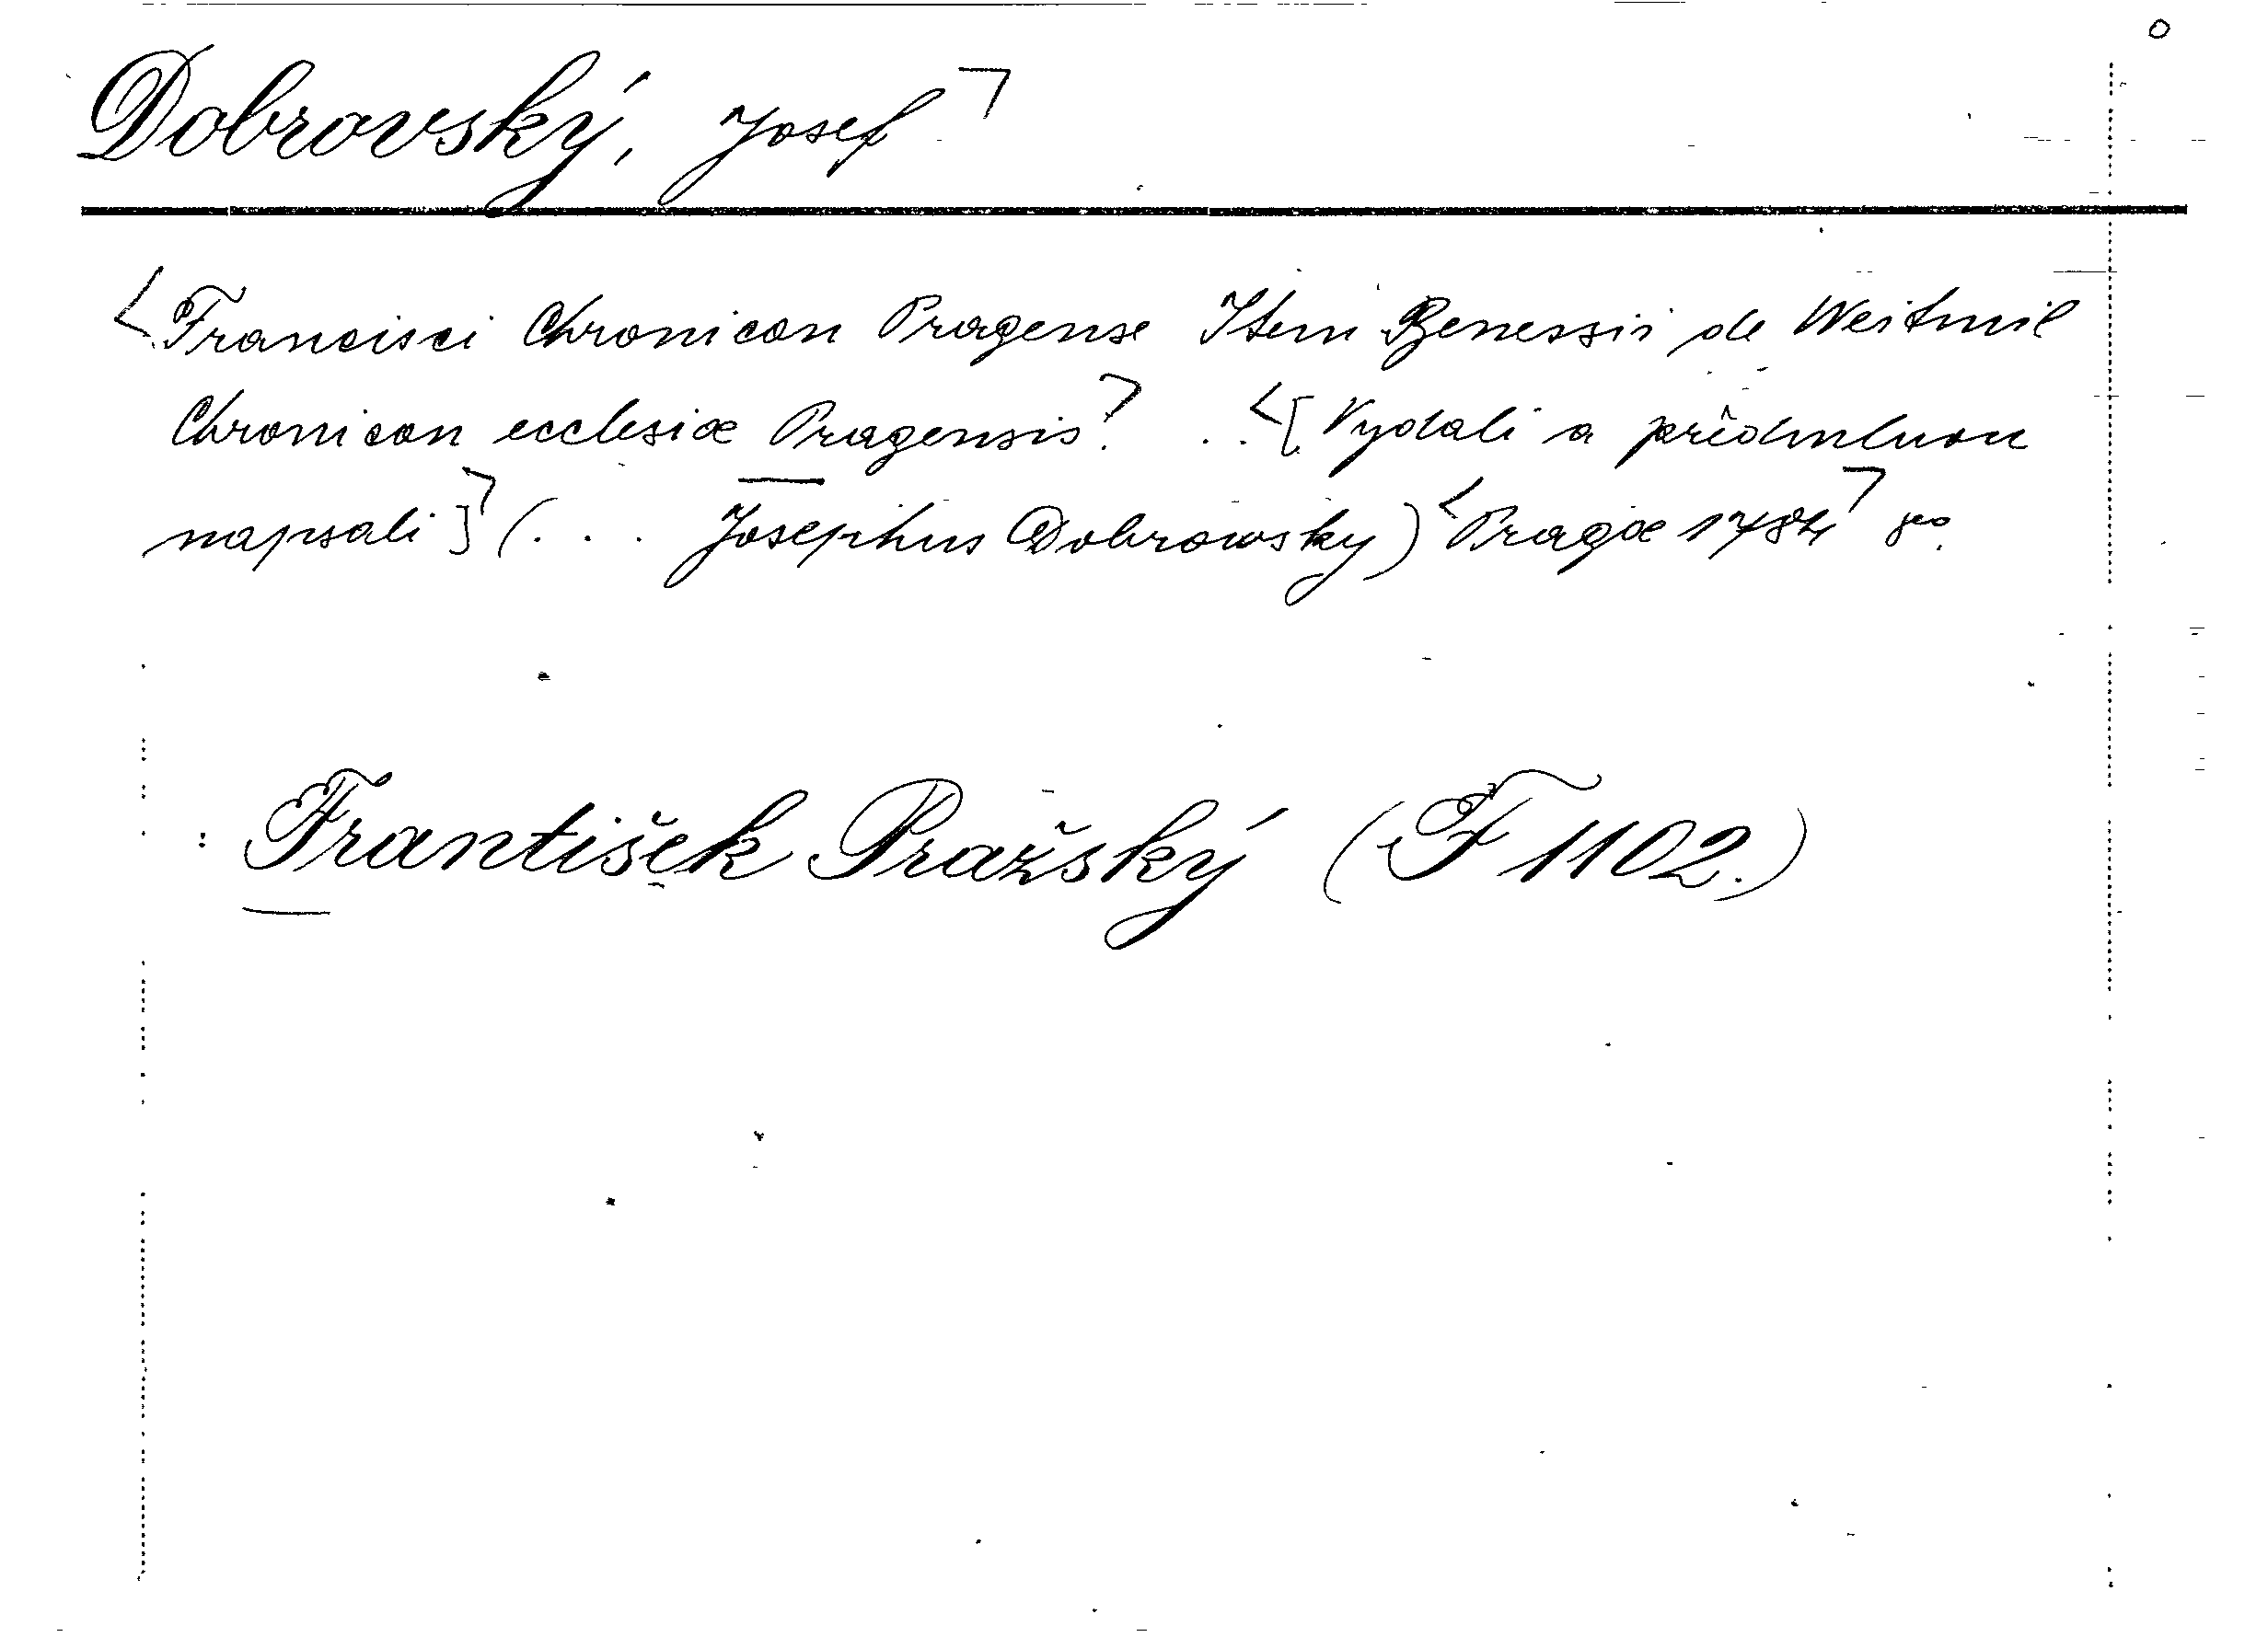 Dobrovský, Josef ┐
<Francisci Chronicon Pragense Item Benessii de Weitmil
Chronicon ecclesiæ Pragensis.┐ ..<[Vydali a předmluvu
napsali]┐(... Josephus Dobrowsky)<Pragæ 1784┐ 8º.
: František Pražský (F 1102.)